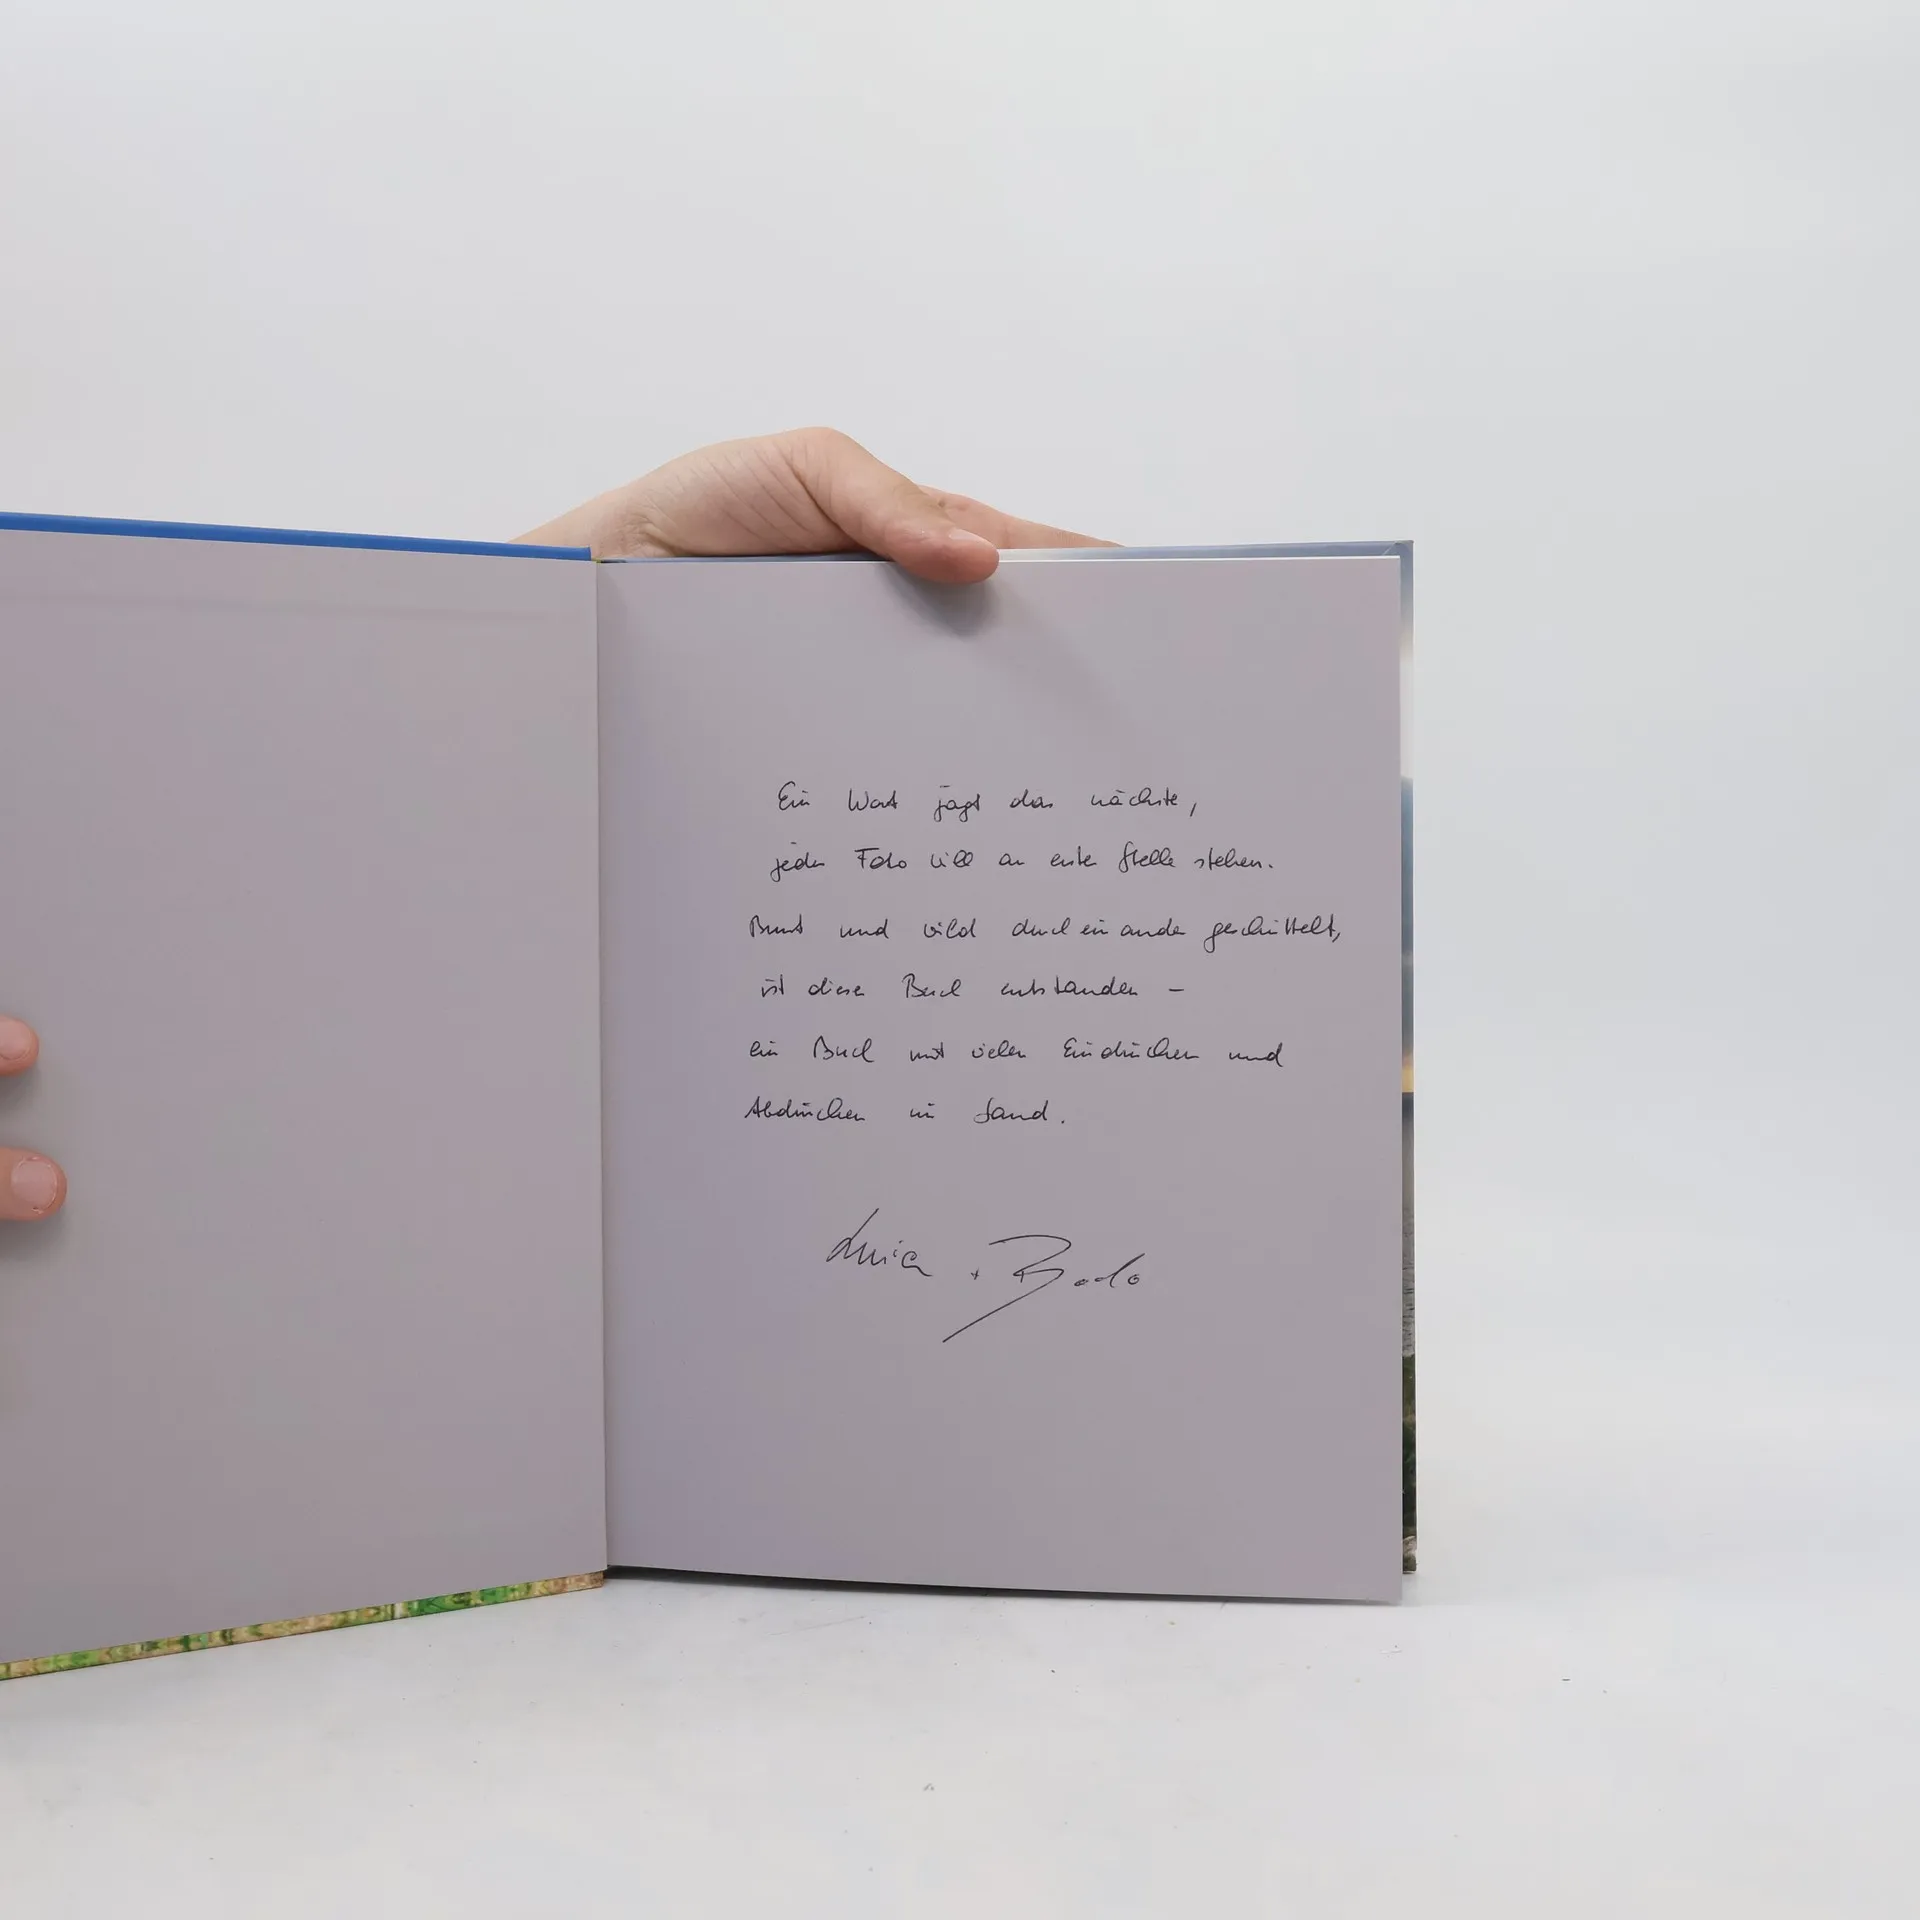 Ein Wort jagt das nächste,
jedes Foto will an erster Stelle stehen.
Bunt und wild durcheinander geschüttelt,
ist dieses Buch entstanden –
ein Buch mit vielen Eindrücken und
Abdrücken im Sand.
Luica + Bodo